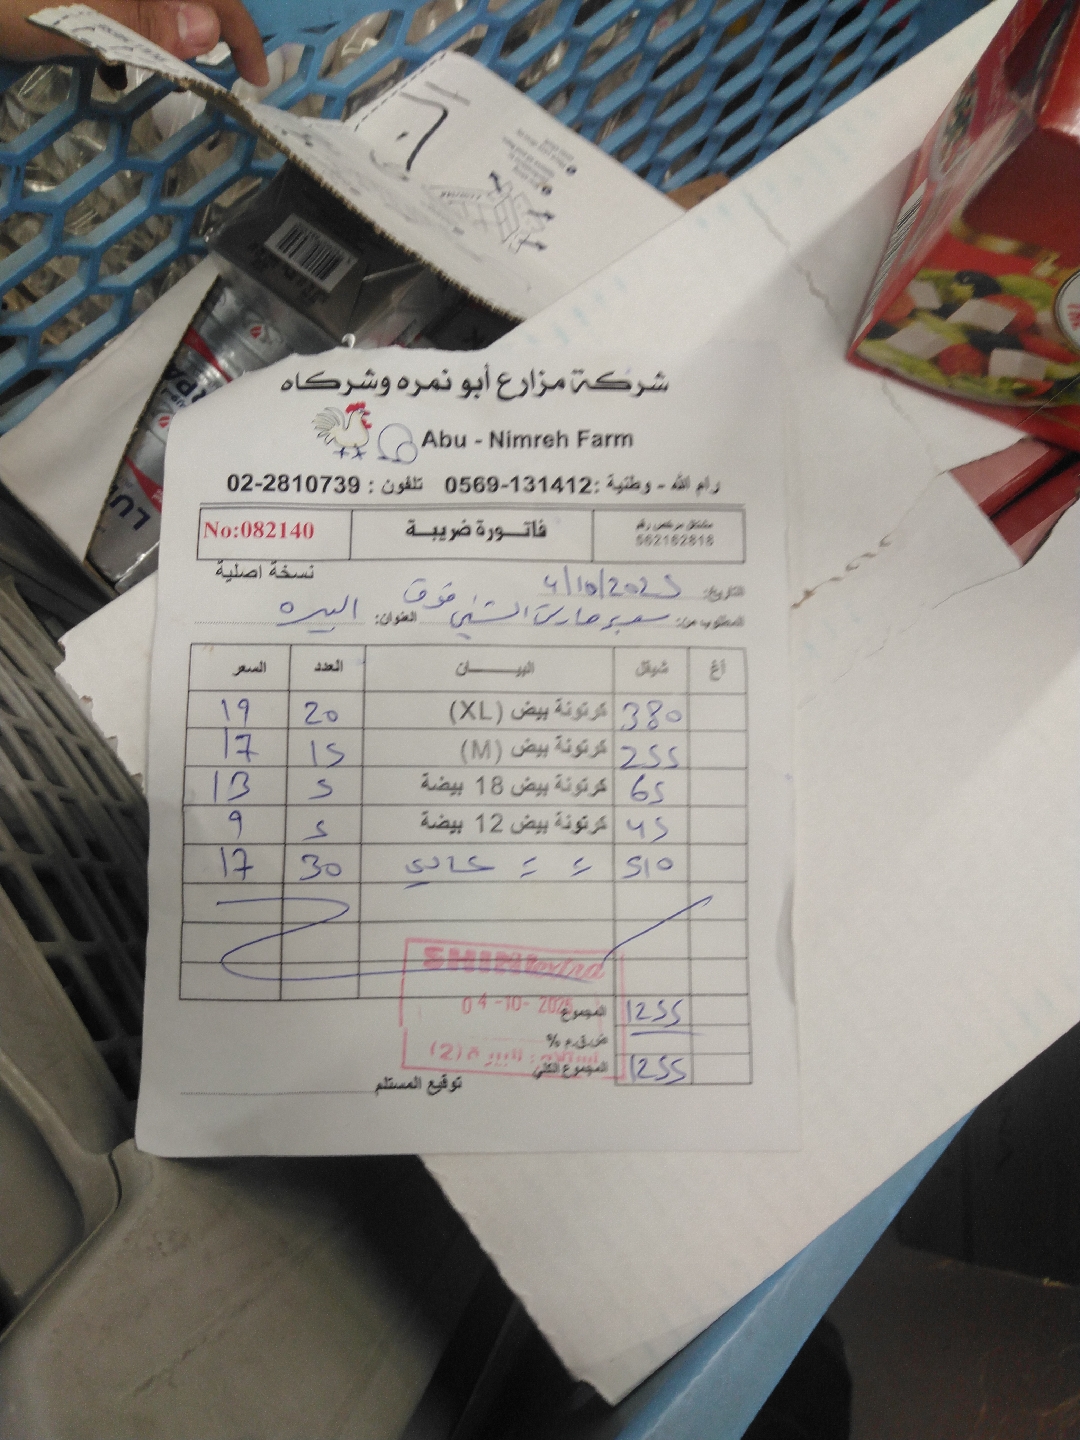 شركة مزارع أبو نمره وشركاه
Abu - Nimreh Farm
رام الله - وطنية :0569-131412 تلفون : 02-2810739
مشتغل مرخص رقم
562162818
فاتورة ضريبة
No:082140
نسخة اصلية
التاريخ: 4/10/2025
المطلوب من: العنوان: البيره
أغ شيقل البيـــــان العدد السعر
380 كرتونة بيض (XL) 20 19
255 كرتونة بيض (M) 15 17
65 كرتونة بيض 18 بيضة 5 13
45 كرتونة بيض 12 بيضة 5 9
510 = = عادي 30 17
المجموع 1255
ض.ق.م %
المجموع الكلي 1255
توقيع المستلم
SHINI
04-10-2025
(2)